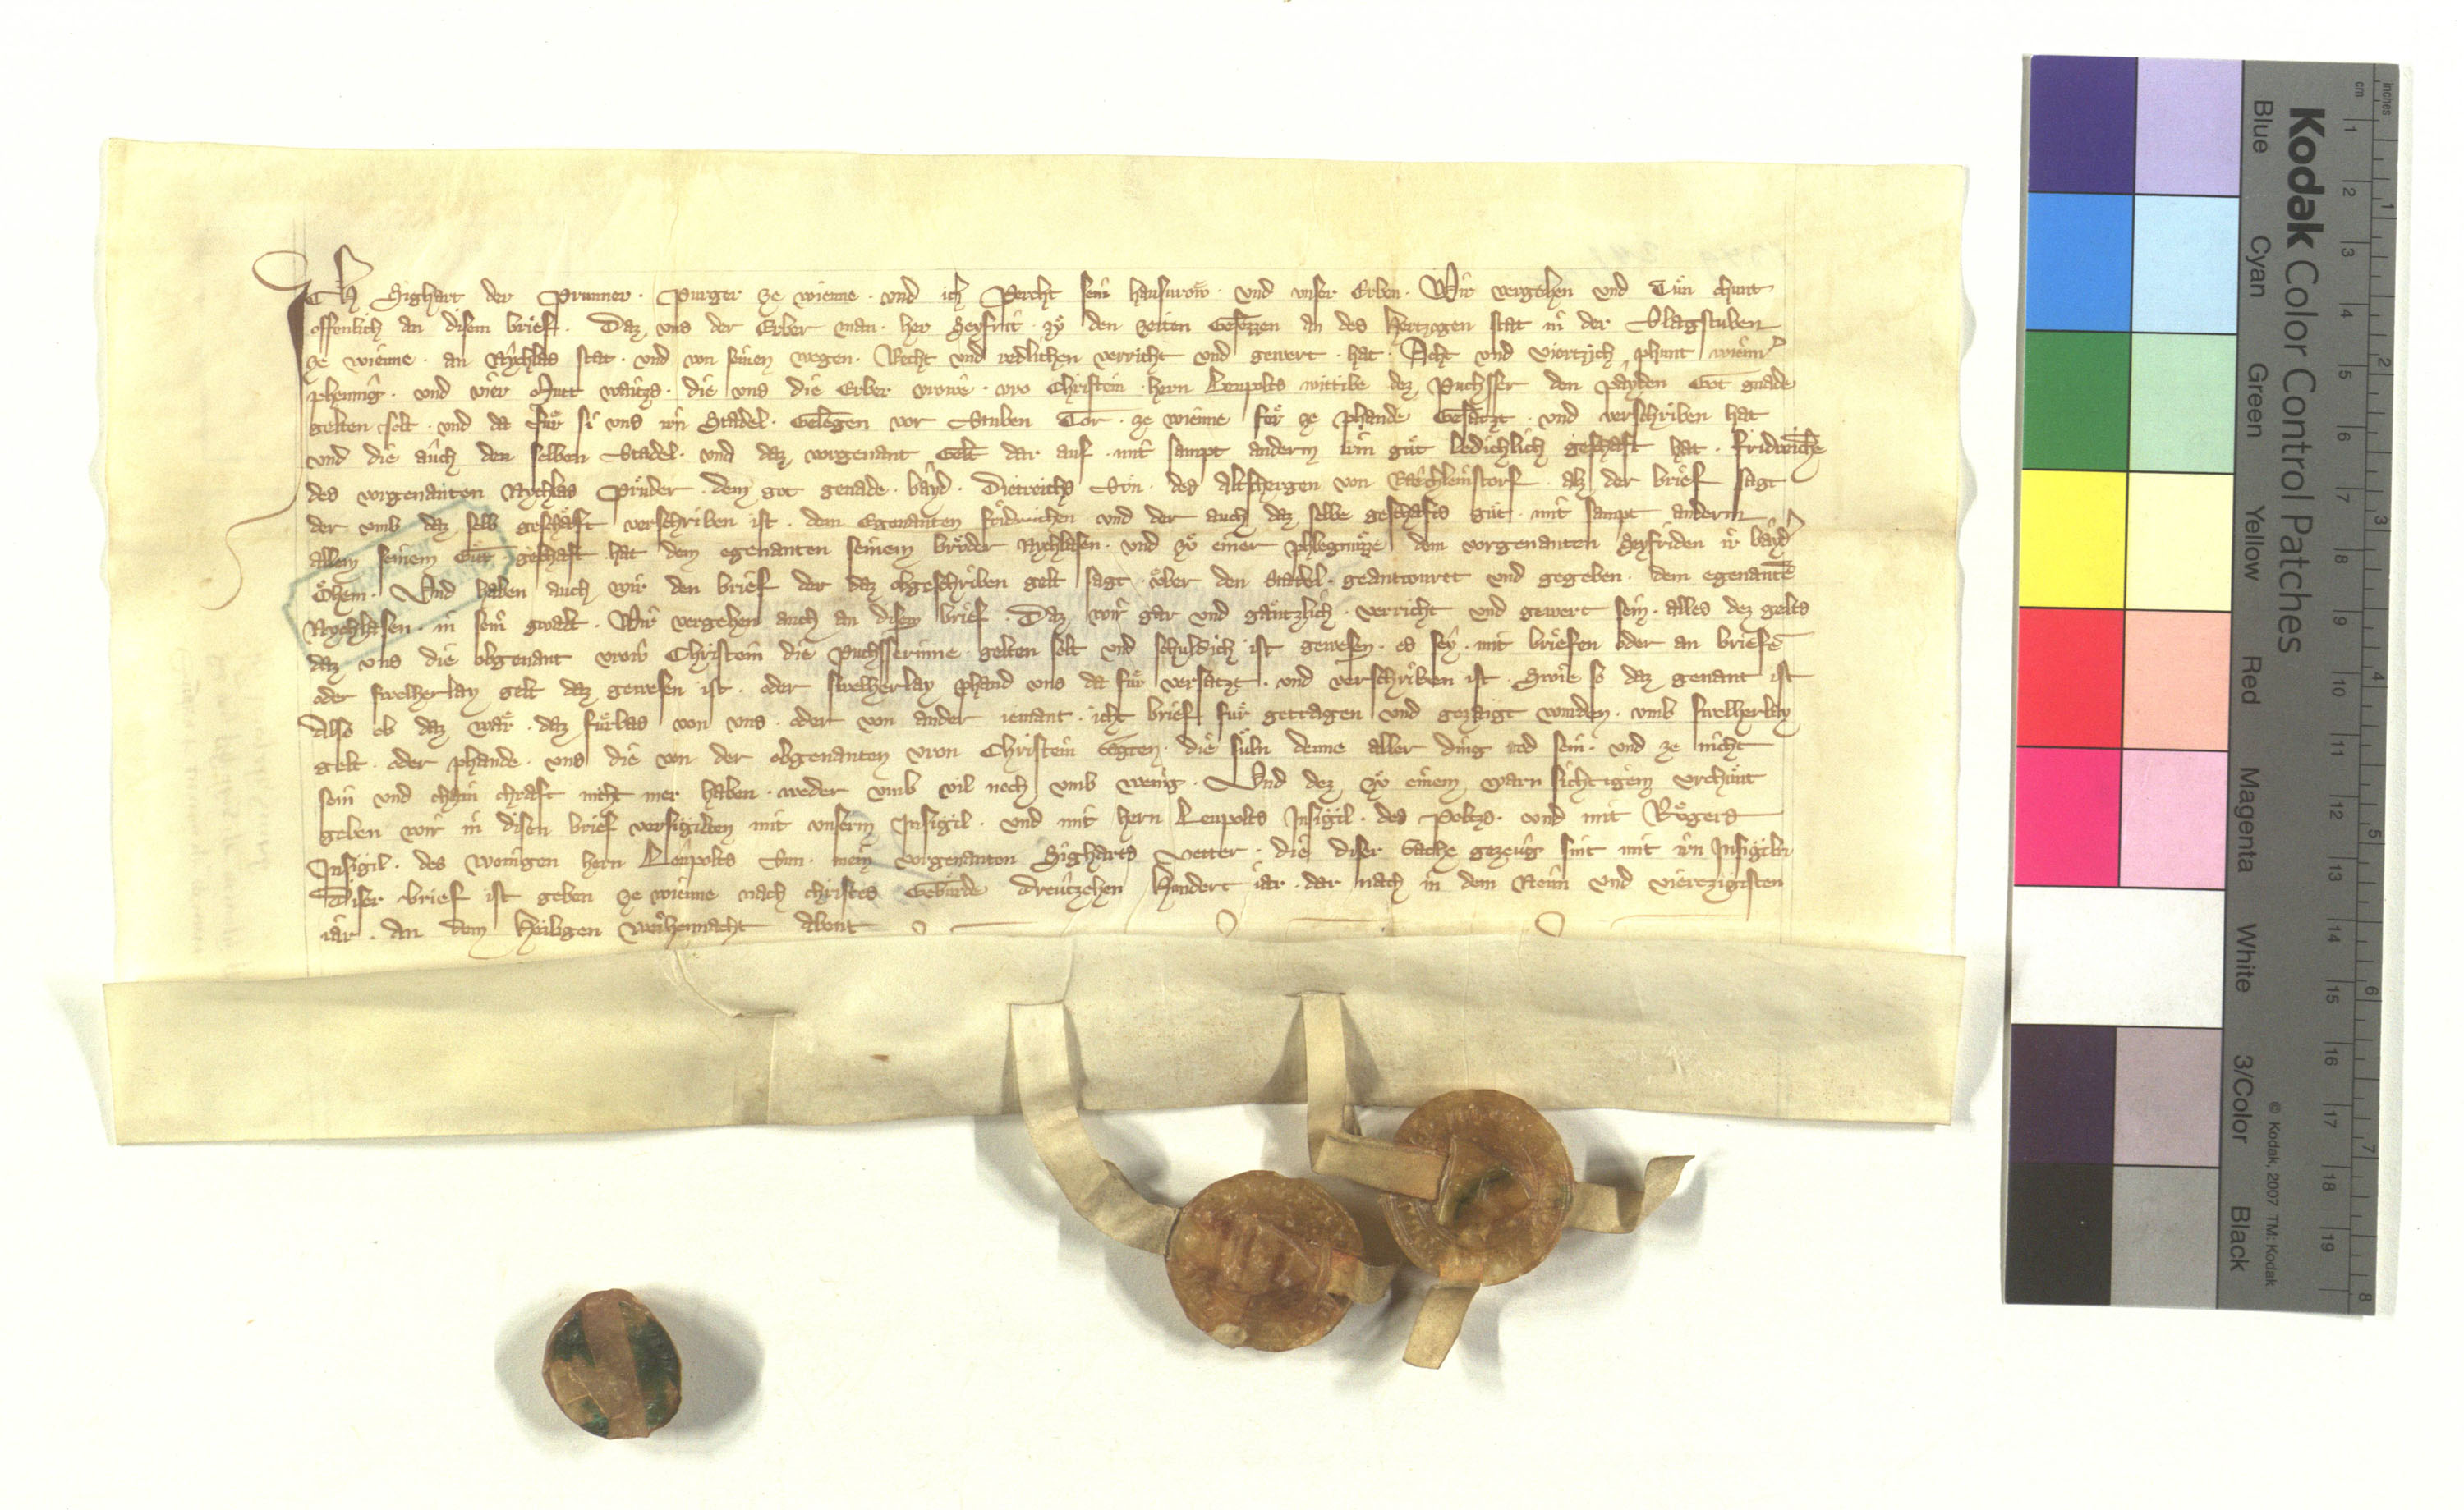 Ich Sighart der Prunner · Purger ze wienne · vnd ich Percht sein hausurow · vnd vnser Erben · Wir vergehen vnd Tuͦn chunt
offenlich an disem brief · Daz vns der Erber man · her Seyfrit · zuͦ den zeiten Gesezzen an des Hertzogen stat in der Slagstuben
ze wienne · an Nychlas stat · vnd von seinen wegen · Recht vnd redlichen verricht vnd gewert · hat · Acht vnd viertzich phunt wienn̄
phennig · vnd vier Mutt waitzs · die vns die Erber vrowe · vro Christein · hern Leupolts wittibe dez Puchsser den payden Got gnade
gelten solt · vnd da fuͤr si vns irn Stadel · Gelegen vor Stuben Tor · ze wienne fuͤr ze phande Gesatzt · vnd verschriben hat
vnd die auch den selben Stadel · vnd daz vorgenant Gelt dar auf · mit sampt anderm irm guͦt ledichlich geschaft hat · Fridreichē
des vorgenanten Nychlas Pruͦder · dem got genade · bayd · Dietreichs Suͤn · des Altschergen von · alz der brief sagt
der vmb daz selb geschaͤft verschriben ist · dem Egenanten Fridreichen vnd der auch daz selbe geschefts guͦt · mit sampt anderm
allem seinem Guͦt geschaft hat dem egenanten seinem bruͦder Nychlasen · vnd zuͦ einer phlegnuzze dem vorgenanten Seyfriden ir bayd̄
oͤhem · Vnd haben auch wir den brief der daz obgeschriben gelt sagt · vͤber den Stadel · geantwurtt vnd gegeben · dem egenantē
Nychlasen · in sein gwalt · Wir vergehen auch an disem brief · Daz wir gar vnd gaͤntzlich · verricht vnd gewert sein · alles dez gelts
daz vns die obgenant vrow Christein die Puchsserinne gelten solt vnd schuldich ist gewesen · ez sey · mit briefen oder an briefē
oder swelherlay gelt daz gewesen ist · oder swelherlay phand vns da fuͤr versatzt · vnd verschriben ist · Swie so daz genant ist
Also ob daz waͤr · daz fuͤrbas von vns · oder von ander iemant · icht brief fuͤr getragen vnd gezaigt wurden · vmb swelherlay
gelt · oder phande · vns die von der obgenanten vron Christein · die suͤln denne aller ding tod sein · vnd ze nicht
sein vnd chain chraft nicht mer haben · weder vmb vil noch vmb wenig · Vnd dez zuͦ einem warn sichtigem vrchuͤnt
geben wir in disen brief versigilten mit vnserm Insigil · vnd mit hern Leupolts Insigil · des Poltzs · vnd mit Ruͤgers
Insigil · des wenigen hern Leupolts Sun · mein vorgenanten Sigharts vetter · die diser sache gezeug sint mit irn Insigiln
Diser brief ist geben ze wienne nach christes Gebuͤrde Dreutzehen Hundert iar · dar nach in dem Neun vnd viertzigisten
iar · An dem Heiligen weihennacht Abent
Kodak Color Control Patches
Blue Cyan Green Yellow Red Magenta White 3/Color Black
© Kodak, 2007 TM: Kodak
inches 1 2 3 4 5 6 7 8
cm 1 2 3 4 5 6 7 8 9 10 11 12 13 14 15 16 17 18 19